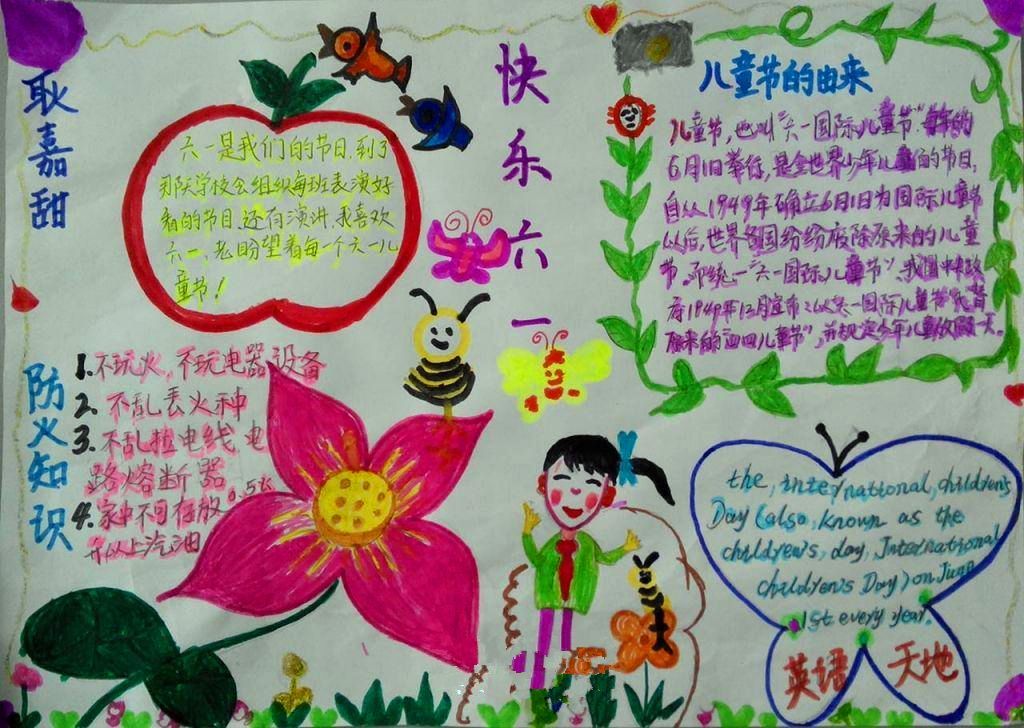 耿嘉甜
快乐六一
六一是我们的节日,到了
那天学校会组织每班表演好
看的节目,还有演讲,我喜欢
六一,老盼望着每一个六一儿
童节!
儿童节的由来
儿童节,也叫“六一国际儿童节”每年的
6月1日举行,是全世界少年儿童们的节日,
自从1949年确立6月1日为国际儿童节
以后,世界各国纷纷废除原来的儿童
节,而统一“六一国际儿童节”,我国中央政
府1949年12月宣布:以六一国际儿童节代替
原来的“四四儿童节”,并规定今年儿童放假一天。
防火知识
1.不玩火,不玩电器设备
2.不乱丢火种
3.不乱拉电线电
路熔断器
4.家中不可存放0.5长
升以上汽油
the, international, children's
Day (also, known as the
children's, day, International
children's Day) on June
1st every year.
英语天地